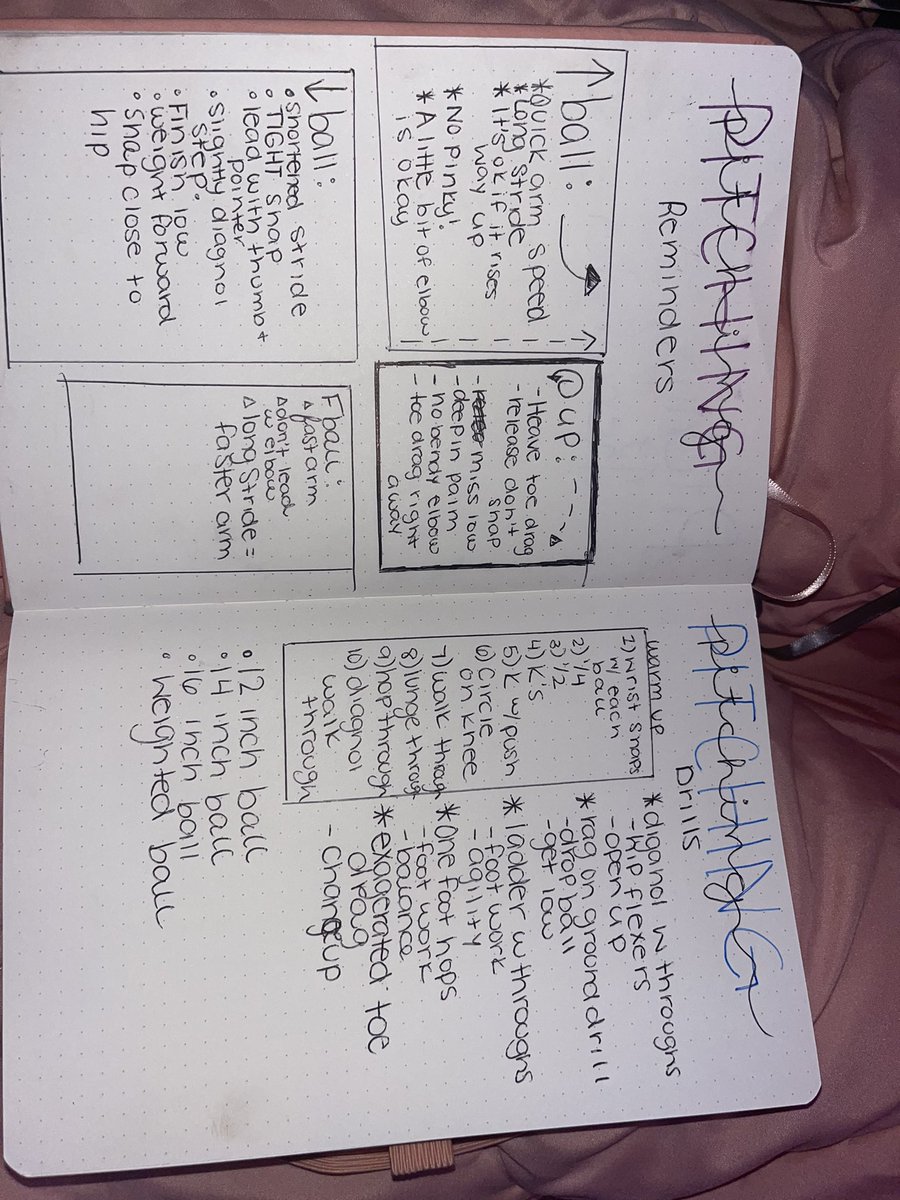 PITCHiNG
Reminders
↑ball:
*Quick arm speed
*Long stride
*It's ok if it rises
way up
*No pinky!
*A little bit of elbow
is okay
@up:
-Heave toe drag
-release don't
snap
-miss low
-deep in palm
-no bendy elbow
-toe drag right
away
↓ball:
•shortened stride
•TIGHT snap
•lead with thumb +
pointer
•slightly diagnol
step.
•Finish low
•weight forward
•snap close to
hip
Fball:
△fast arm
△don't lead
w elbow
△long stride =
faster arm
PITCHiNG
Drills
warm up
1) wrist snaps
w/ each
ball
2) 1/4
3) 1/2
4) K's
5) K w/ push
6) Circle
on knee
7) walk through
8) lunge through
9) hop through
10) diagnol
walk
through
*diganol w throughs
-hip flexers
-open up
*rag on ground drill
-drop ball
-get low
*ladder w throughs
-foot work
-agility
*One foot hops
-foot work
-balance
*exagerated toe
drag
-changeup
•12 inch ball
•14 inch ball
•16 inch ball
•weighted ball